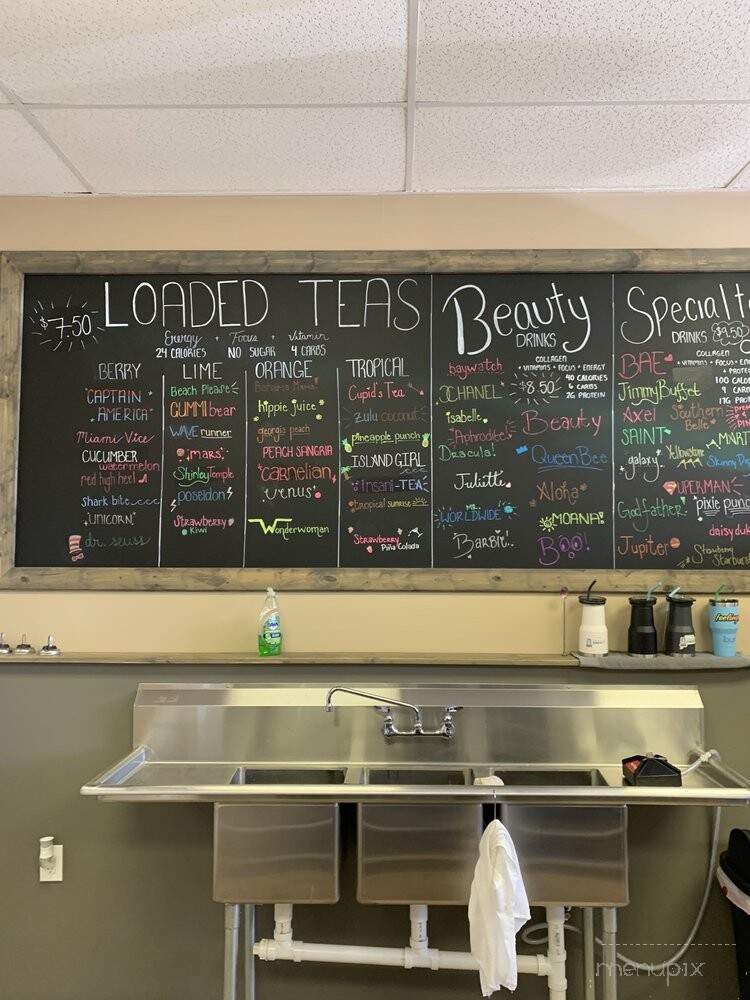 $7.50
LOADED TEAS
Energy + Focus + Vitamin
24 CALORIES NO SUGAR 4 CARBS
BERRY
"CAPTAIN
AMERICA"
Miami Vice
CUCUMBER
watermelon
red high heel
shark bite
"UNICORN"
dr. seuss
LIME
Beach Please
GUMMI bear
WAVE runner
mars
Shirley Temple
poseidon
Strawberry
Kiwi
ORANGE
Bahama Mama
hippie juice
georgia peach
PEACH SANGRIA
carnelian
venus
Wonderwoman
TROPICAL
Cupid's Tea
zulu coconut
pineapple punch
ISLAND GIRL
Insani-TEA
tropical sunrise
Strawberry
Piña Colada
Beauty
DRINKS
COLLAGEN
+ VITAMINS + FOCUS + ENERGY
$8.50
40 CALORIES
6 CARBS
2G PROTEIN
baywatch
CHANEL
isabelle
Aphrodite
Dracula!
Juliette
MR.
WORLDWIDE
Barbie!
Beauty
QueenBee
Aloha
MOANA!
BOO!
Specialt
DRINKS $9.50
COLLAGEN
+ VITAMINS + FOCUS + ENERGY
+ PROTE
100 CALO
9 CARB
17G PROT
BAE
Jimmy Buffet
Axel
SAINT
galaxy
Godfather!
Jupiter
Southern
Belle
Yellowstone
SUPERMAN
pixie punc
daisy duk
Strawberry
Starburs
MARI
Skinny D
feeling
menupix